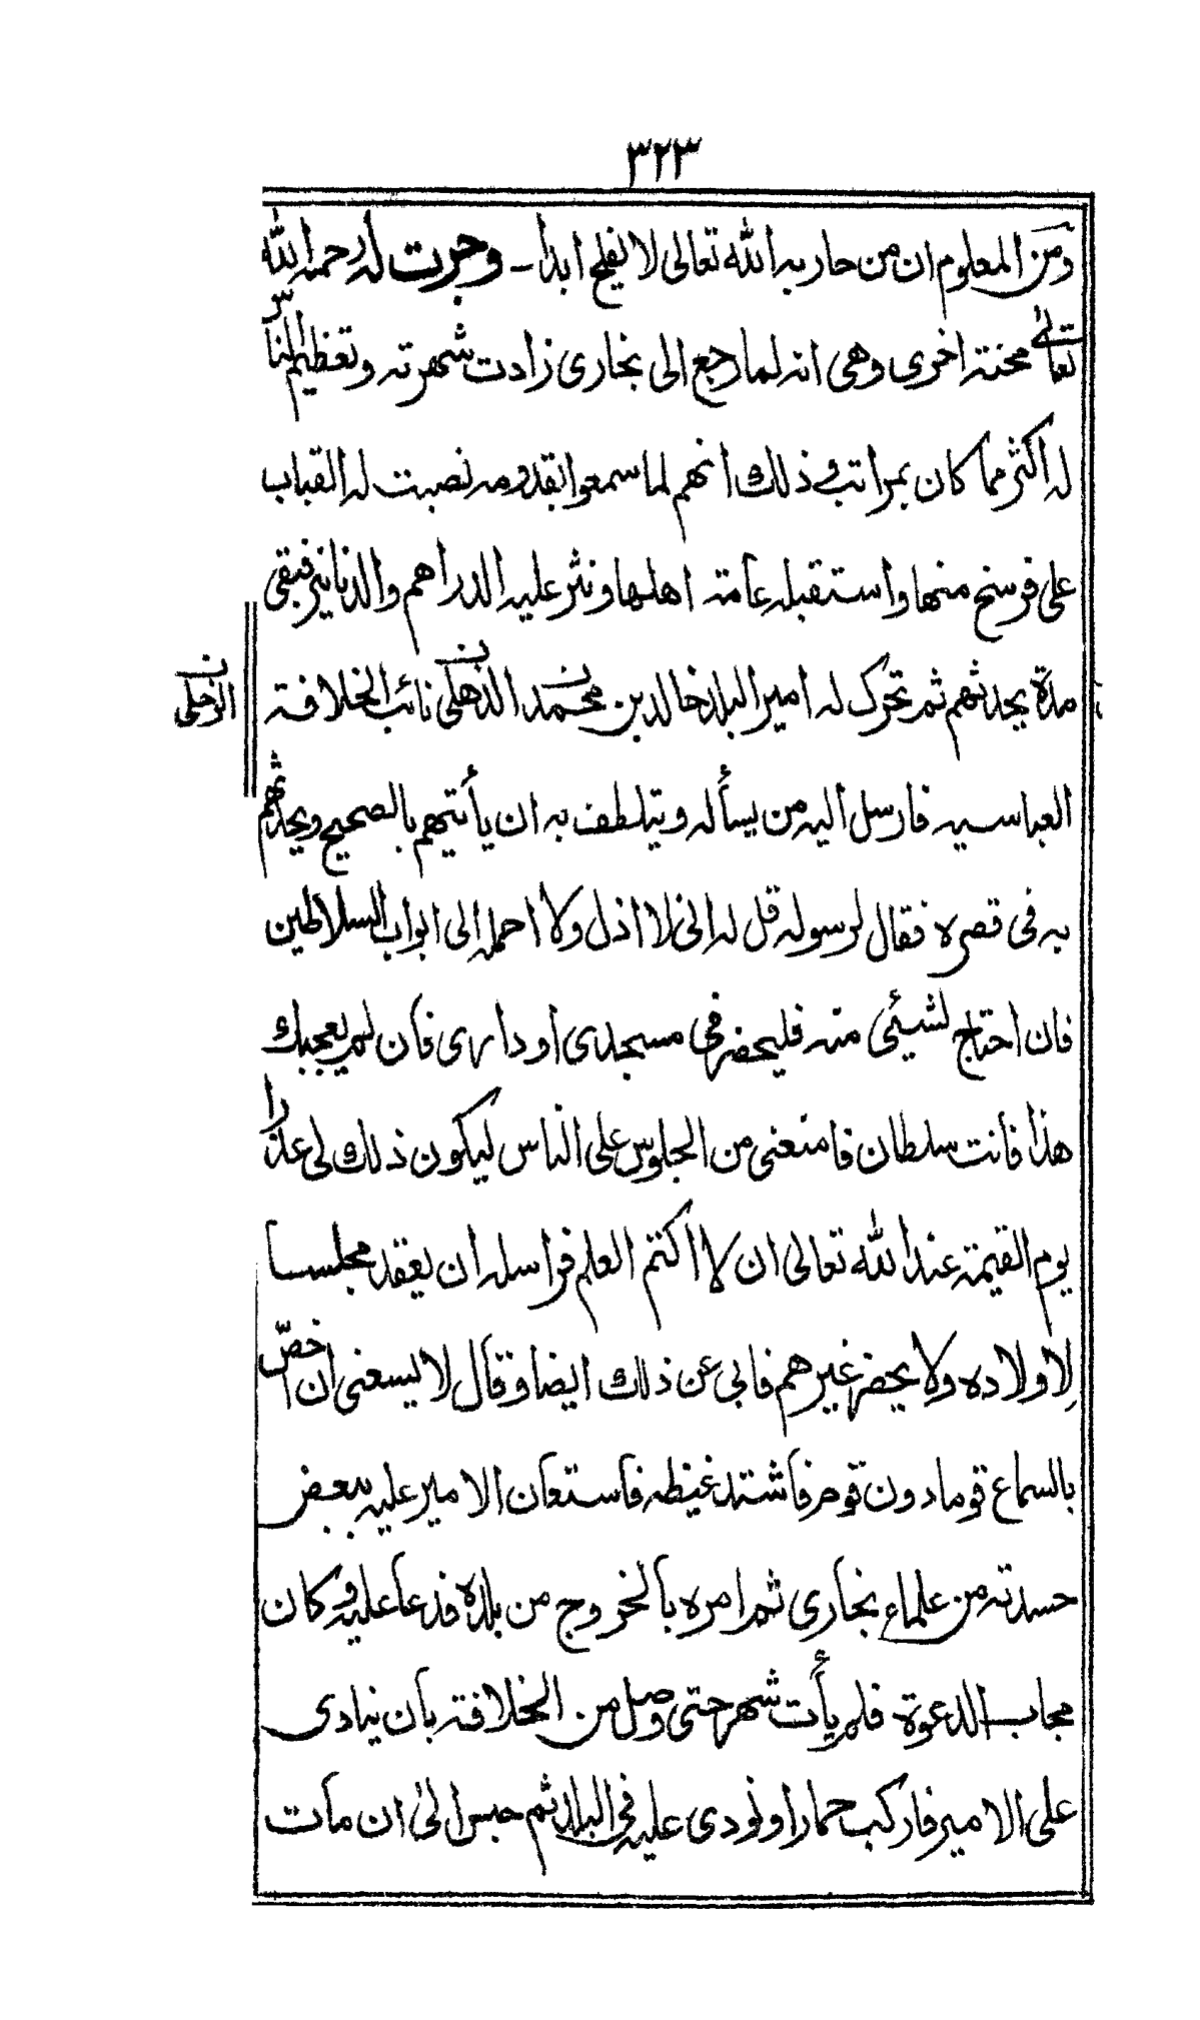 ٣٢٣
ومن المعلوم ان من حاربه الله تعالى لا يفلح ابدا ـ وجرت له رحمه الله
تعالى محنة اخرى وهى انه لما رجع الى بخارى زادت شهرته وتعظيم الناس
له اكثر مما كان بمراتب وذلك انهم لما سمعوا بقدومه نصبت له القباب
على فرسخ منها واستقبله عامة اهلها ونثر عليه الدراهم والدنانير فبقى
مدة يحدثهم ثم تحرك له امير البلد خالد بن محمد الذهلى نائب الخلافة
العباسيه فارسل اليه من يسأله ويتلطف به ان يأتيهم بالصحيح ويحدثهم
به فى قصره فقال لرسوله قل له انى لا اذل ولا احمله الى ابواب السلاطين
فان احتاج لشيئى منه فليحضر فى مسجدى او دارى فان لم يعجبك
هذا فانت سلطان فامنعنى من الجلوس على الناس ليكون ذلك لى عذرا
يوم القيمة عند الله تعالى ان لا اكتم العلم فراسله ان يعقد مجلسا
لاولاده ولا يحضر غيرهم فابى عن ذلك ايضا وقال لا يسعنى ان اخصّ
بالسماع قوما دون قوم فاشتد غيظه فاستعان الامير عليه ببعض
حسدته من علماء بخارى ثم امره بالخروج من بلده فدعا عليه وكان
مجاب الدعوة فلم يأت شهر حتى وصل من الخلافة بان ينادى
على الامير فاركب حمارا ونودى عليه فى البلد ثم حبس الى ان مات